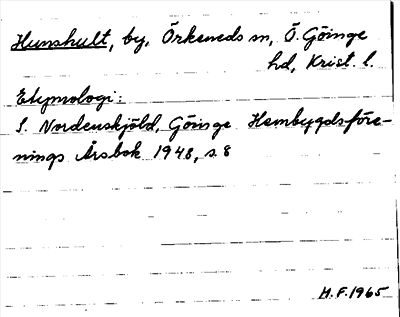 Hunshult, by, Örkeneds sn, Ö. Göinge
hd, Krist. l.
Etymologi:
S. Nordenskjöld, Göinge Hembygdsföre-
nings Årsbok 1948, s. 8
H.F. 1965